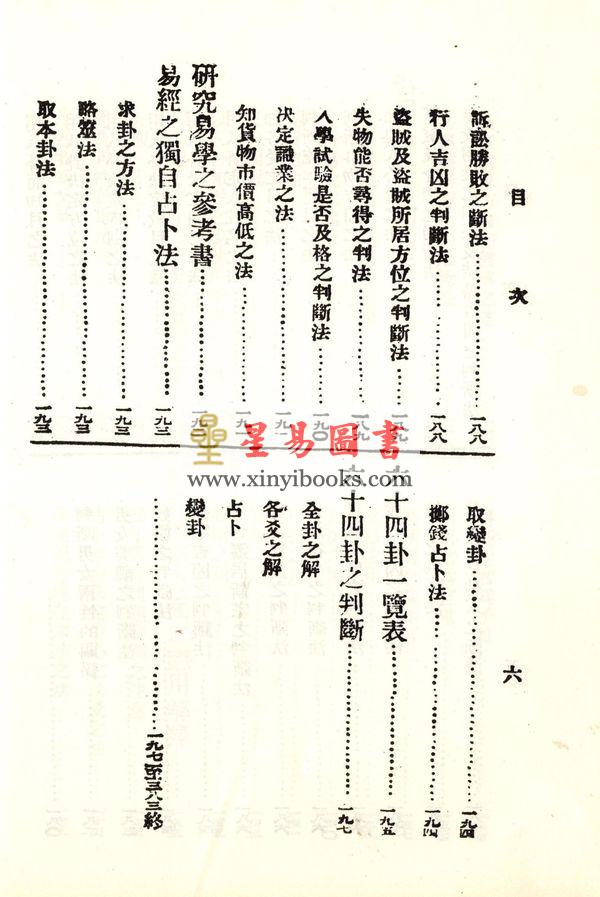 目次
六
訴訟勝敗之斷法……一八八
行人吉凶之判斷法……一八八
盜賊及盜賊所居方位之判斷法……一八九
失物能否尋得之判法……一八九
入學試驗是否及格之判斷法……一九〇
决定職業之法……一九一
知貨物市價高低之法……一九一
研究易學之參考書……一九二
易經之獨自占卜法……一九二
求卦之方法……一九三
略筮法……一九三
取本卦法……一九三
取變卦……一九四
擲錢占卜法……一九四
六十四卦一覽表……一九五
六十四卦之判斷……一九七
全卦之解
各爻之解
占卜
變卦
……一九七至三八三終
星易圖書
www.xinyibooks.com